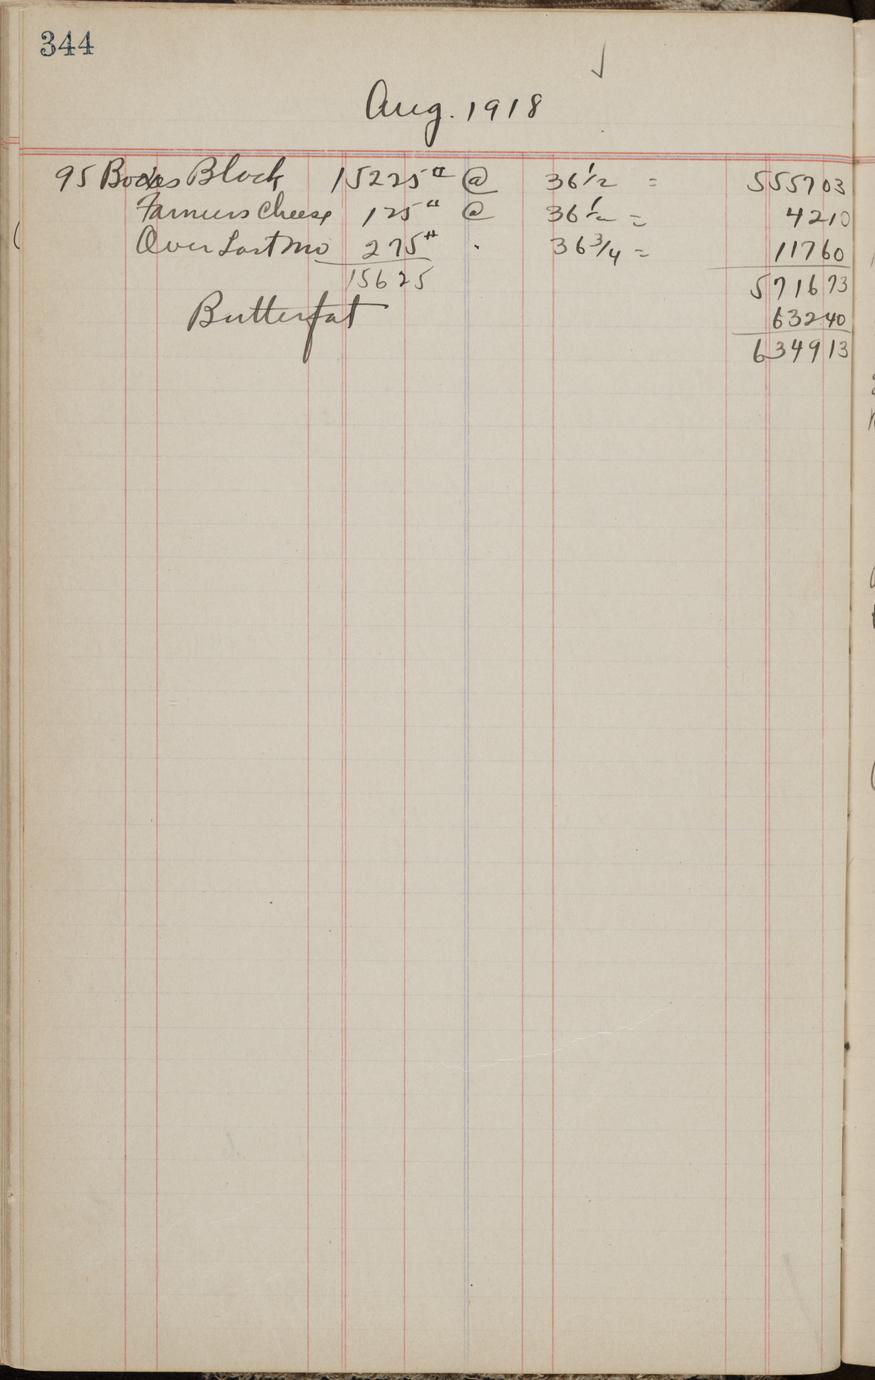 344
Aug. 1918
95 Boxes Block 15225# @ 36 1/2 = 555703
Farmers Cheese 125" @ 36 1/2 = 4210
Over Last Mo 275# . 36 3/4 = 11760
15625 571673
Butterfat 63240
634913